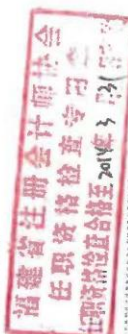 福建省注册会计师协会
任职资格检查专用章
任职资格检查合格至2014年3月31